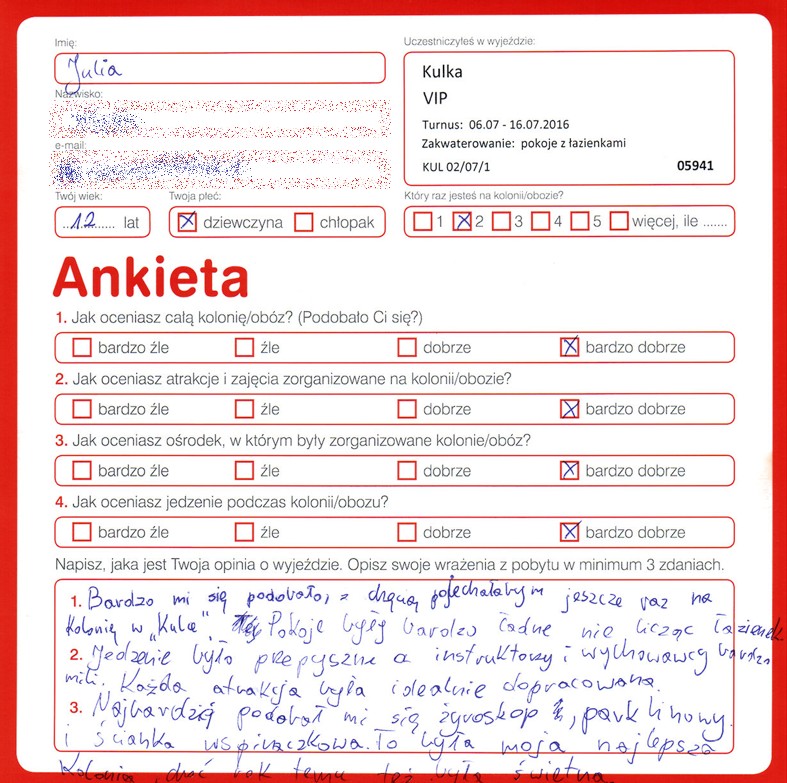 Imię:
Julia
Nazwisko:
e-mail:
Uczestniczyłeś w wyjeździe:
Kulka
VIP
Turnus: 06.07 - 16.07.2016
Zakwaterowanie: pokoje z łazienkami
KUL 02/07/1 05941
Twój wiek: Twoja płeć: Który raz jesteś na kolonii/obozie?
...12...... lat dziewczyna chłopak 1 2 3 4 5 więcej, ile .......
Ankieta
1. Jak oceniasz całą kolonię/obóz? (Podobało Ci się?)
bardzo źle źle dobrze bardzo dobrze
2. Jak oceniasz atrakcje i zajęcia zorganizowane na kolonii/obozie?
bardzo źle źle dobrze bardzo dobrze
3. Jak oceniasz ośrodek, w którym były zorganizowane kolonie/obóz?
bardzo źle źle dobrze bardzo dobrze
4. Jak oceniasz jedzenie podczas kolonii/obozu?
bardzo źle źle dobrze bardzo dobrze
Napisz, jaka jest Twoja opinia o wyjeździe. Opisz swoje wrażenia z pobytu w minimum 3 zdaniach.
1. Bardzo mi się podobało, z chęcią pojechałabym jeszcze raz na
kolonię w „Kulce” Pokoje były bardzo ładne nie licząc łazienek
2. Jedzenie było przepyszne a instruktorzy i wychowawcy bardzo
mili. Każda atrakcja była idealnie dopracowana.
3. Najbardzię podobał mi się żyroskop, park linowy
i ścianka wspinaczkowa. To była moja najlepsza
kolonia, choć rok temu też była świetna.